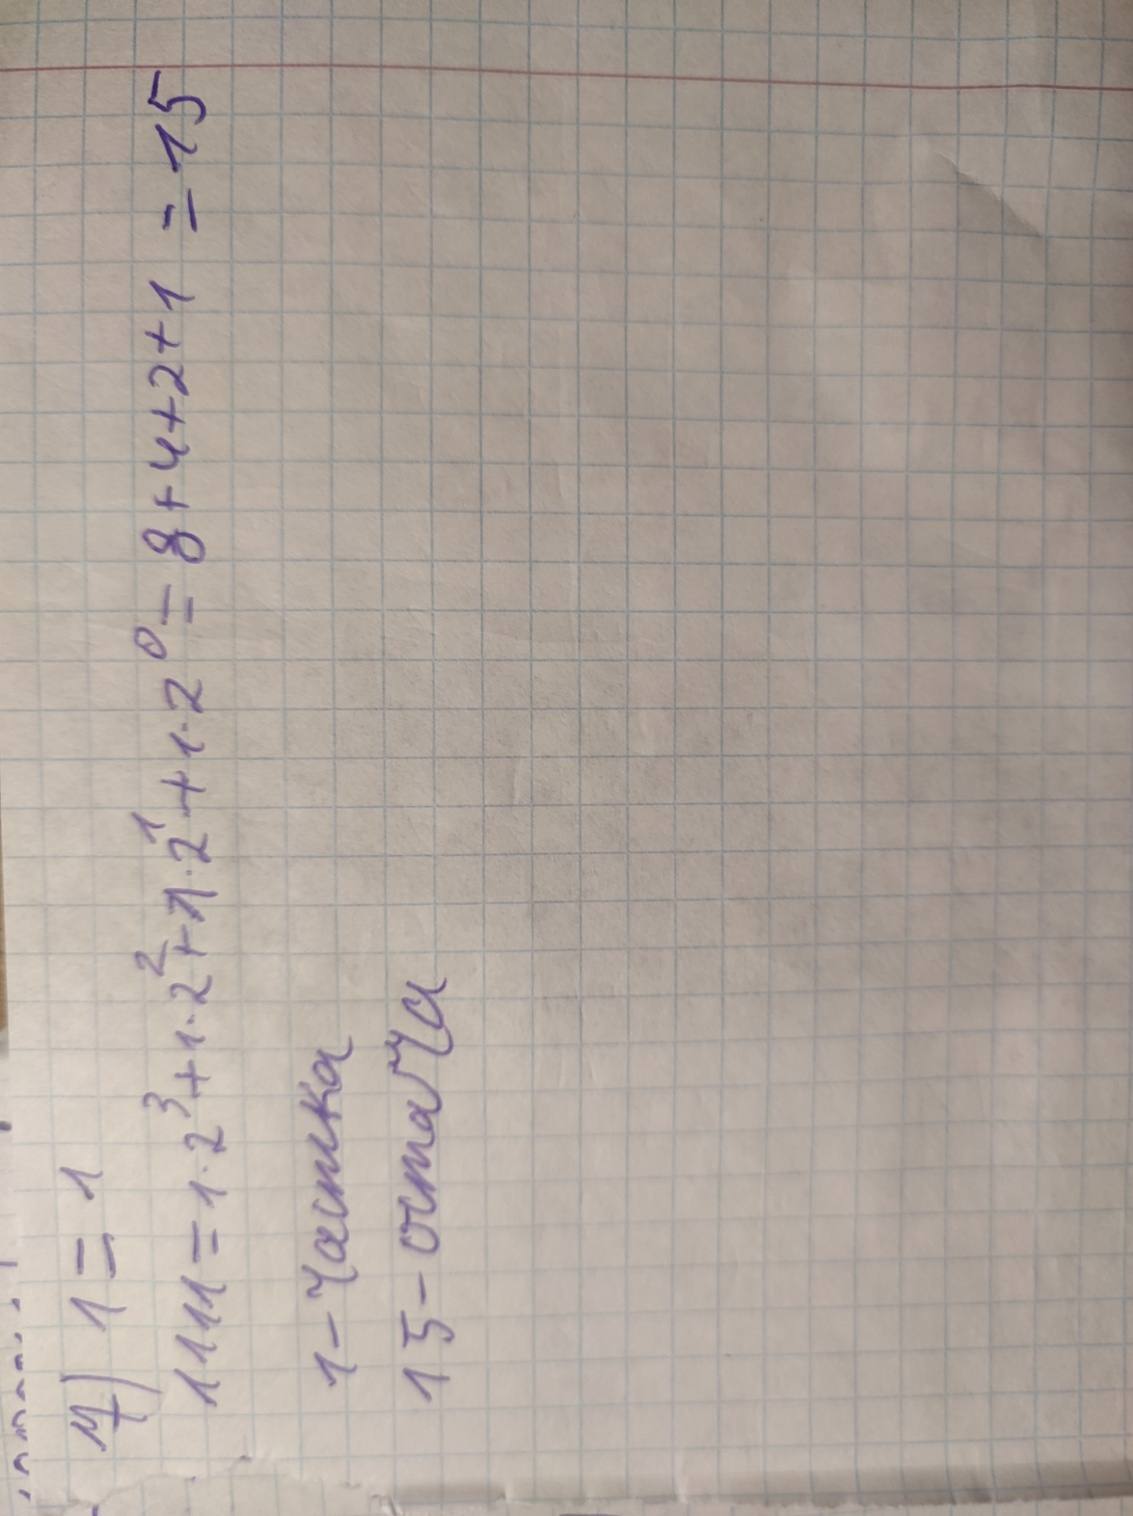 4) 1 = 1
1111 = 1·2³ + 1·2² + 1·2¹ + 1·2⁰ = 8 + 4 + 2 + 1 = 15
1 - частка
15 - остача